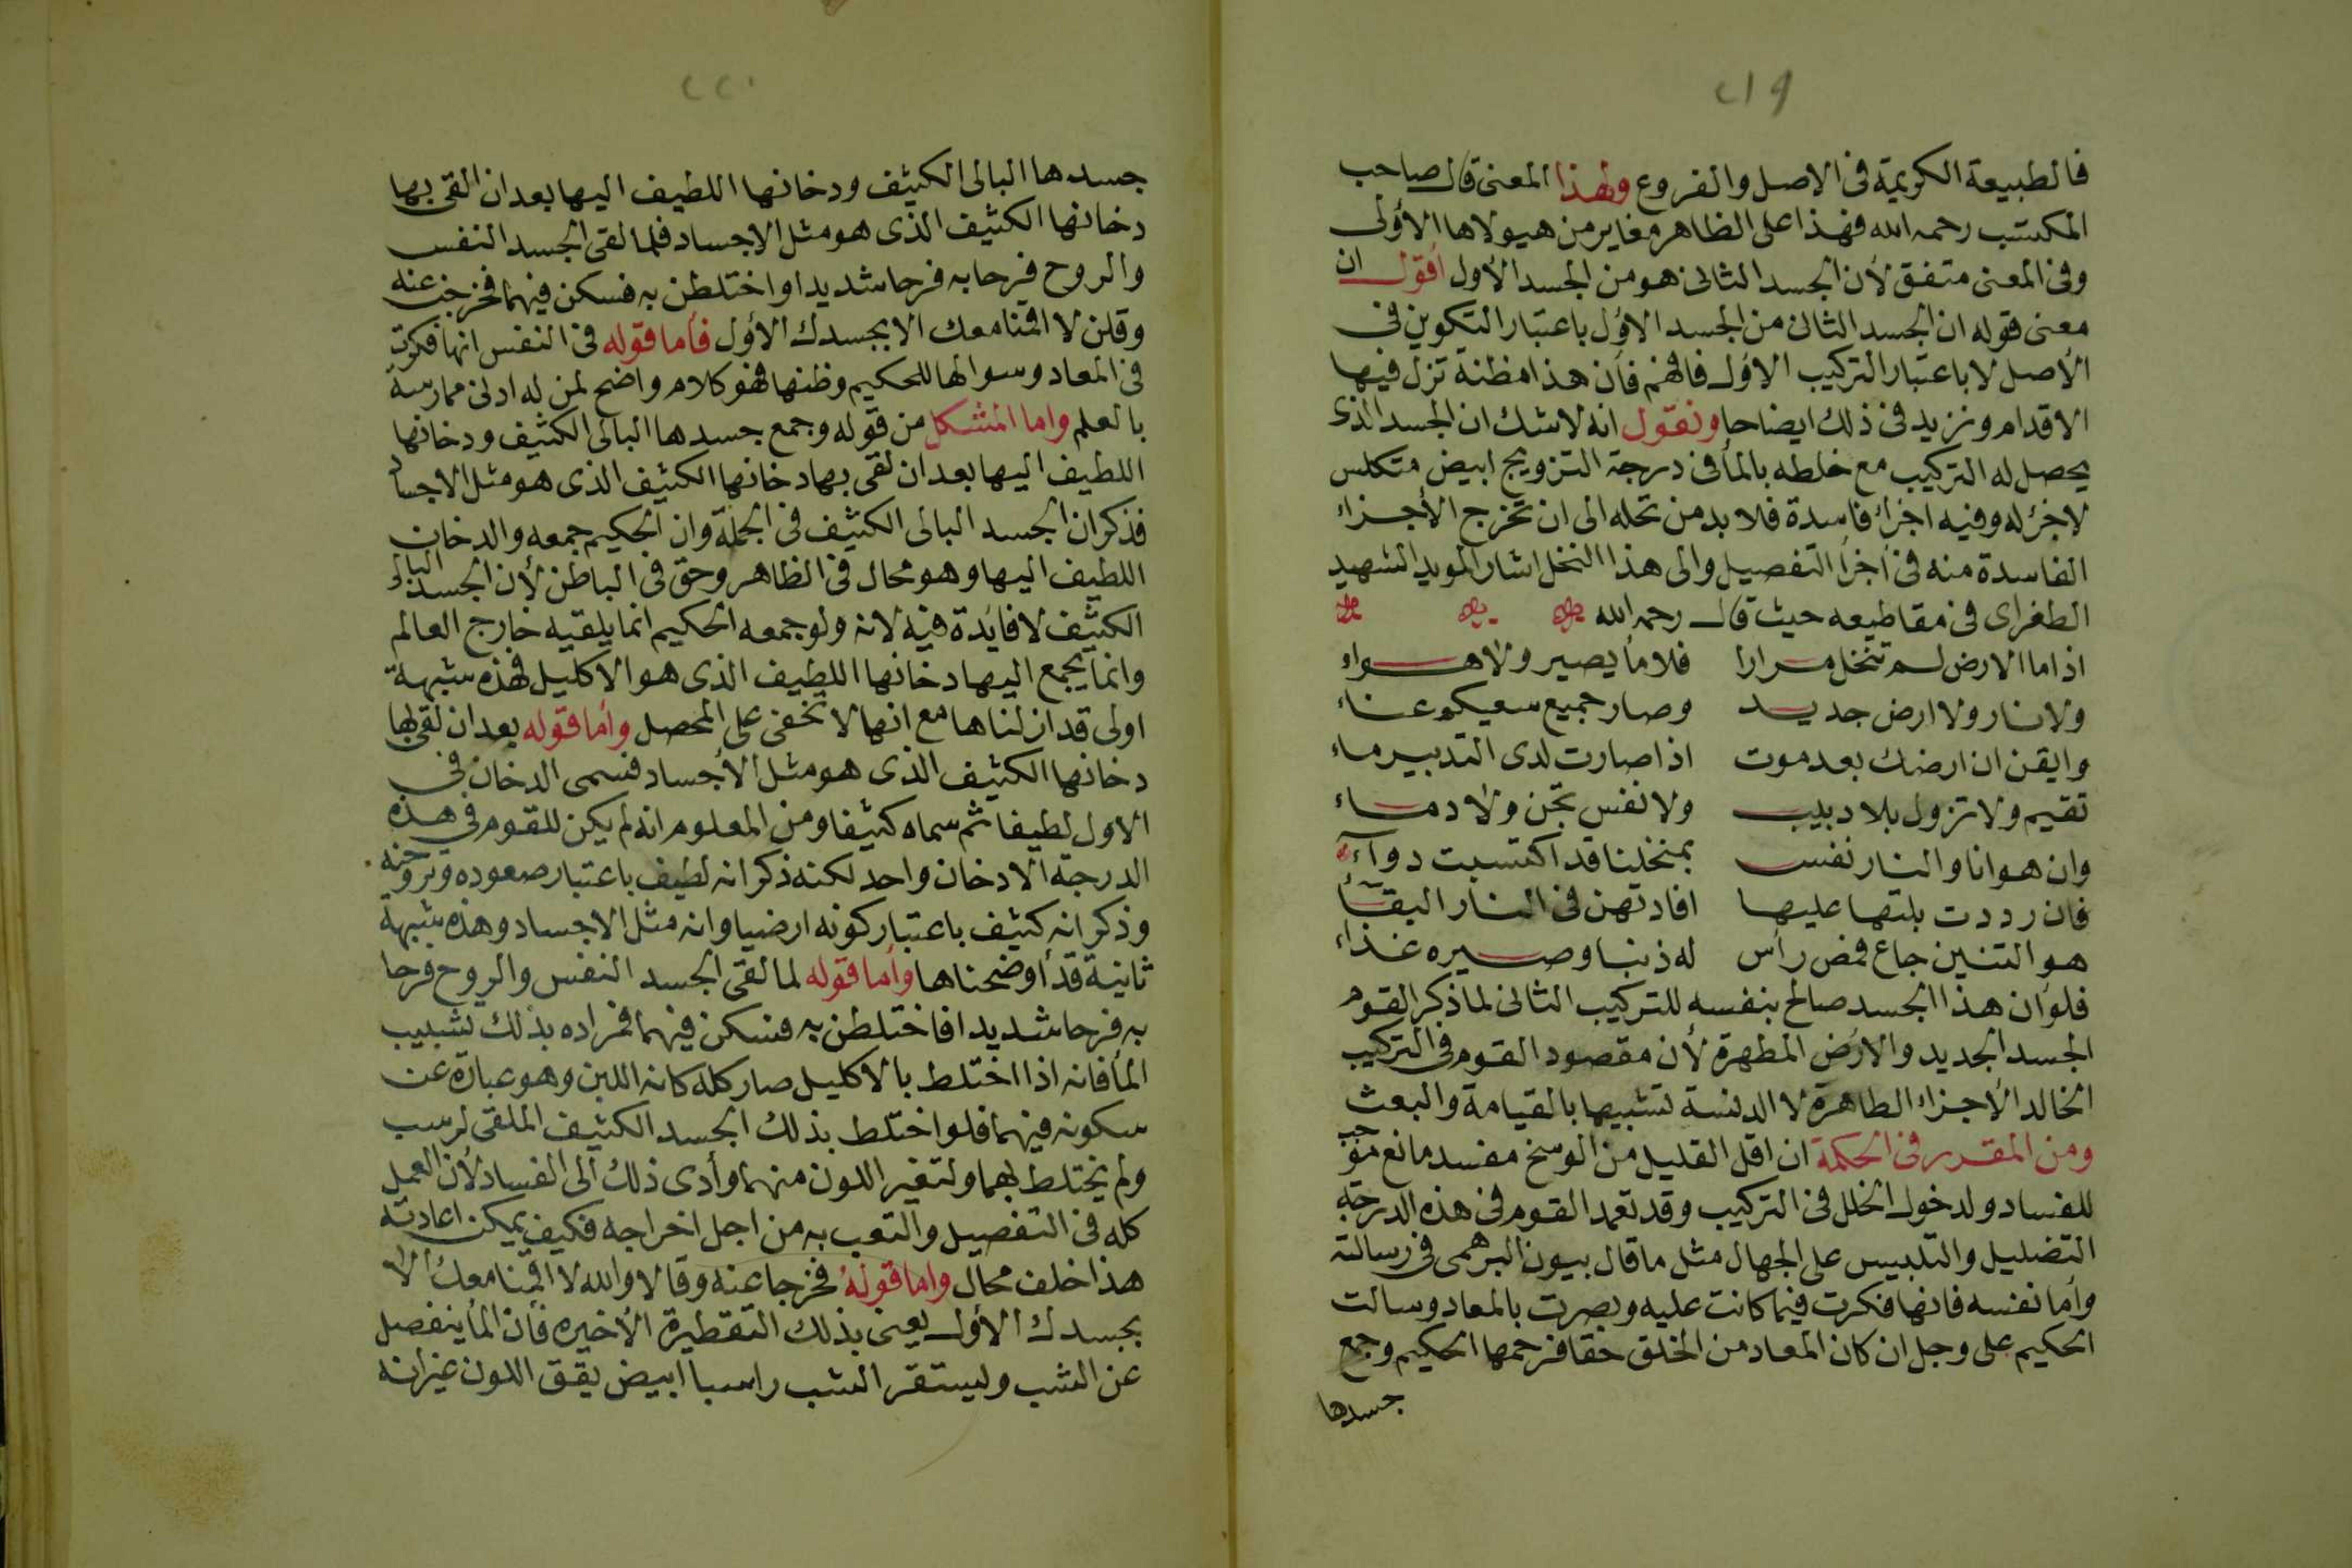 ٢١٩
فالطبيعة الكريمة فى الاصل والفروع ولهذا المعنى قال صاحب
المكتسب رحمه الله فهذا على الظاهر مغاير من هيولاها الأولى
وفى المعنى متفق لأن الجسد الثانى هو من الجسد الأول اقول ان
معنى قوله ان الجسد الثانى من الجسد الاول باعتبار التكوين فى
الأصل لا باعتبار التركيب الاول فافهم فأن هذا مظنة تزل فيها
الاقدام ونزيد فى ذلك ايضاحا ونقول انه لاشك ان الجسد الذى
يحصل له التركيب مع خلطه بالمأ فى درجة التزويج ابيض متكلس
لاجزء له وفيه اجزاء فاسدة فلا بد من نخله الى ان تخرج الأجزاء
الفاسدة منه فى اجزأ التفصيل والى هذا النخل اشار المويد الشهيد
الطغراى فى مقاطيعه حيث قال رحمه الله
اذا ما الارض لم تنخل مرارا فلا مأ يصير ولا هواء
ولا نار ولا ارض جديد وصار جميع سعيكم عناء
وايقن ان ارضك بعد موت اذا صارت لدى التدبير ماء
تقيم ولا تزول بلا دبيب ولا نفس تجن ولا دماء
وان هوانا والنار نفس بمنخلنا قد اكتسبت دوآء
فان رددت بلتها عليها افادتهن فى النار البقآء
هو التنين جاع فمض رأس له ذنبا وصيره غذاء
فلو ان هذا الجسد صالح بنفسه للتركيب الثانى لما ذكر القوم
الجسد الجديد والارض المطهرة لأن مقصود القوم فى التركيب
الخالد الأجزاء الطاهرة لا الدنسة تشبيها بالقيامة والبعث
ومن المقرر فى الحكمة ان اقل القليل من الوسخ مفسد مانع موجب
للفساد ولدخول الخلل فى التركيب وقد تعمد القوم فى هذه الدرجة
التضليل والتلبيس على الجهال مثل ما قال بيون البرهمى فى رسالته
وأما نفسه فانها فكرت فيما كانت عليه وبصرت بالمعاد وسالت
الحكيم على وجل ان كان المعاد من الخلق حقا فرحمها الحكيم وجمع
جسدها
٢٢٠
جسدها البالى الكثيف ودخانها اللطيف اليها بعد ان القى بها
دخانها الكثيف الذى هو مثل الاجساد فلما لقى الجسد النفس
والروح فرحا به فرحا شديدا واختلطن به فسكن فيهما فخرجن عنه
وقلن لا اقمنا معك الا بجسدك الأول فأما قوله فى النفس انها فكرت
فى المعاد وسوالها للحكيم وظنها فهو كلام واضح لمن له ادنى ممارسة
بالعلم واما المشكل من قوله وجمع جسدها البالى الكثيف ودخانها
اللطيف اليها بعد ان لقى بها دخانها الكثيف الذى هو مثل الاجساد
فذكر ان الجسد البالى الكثيف فى الجملة وان الحكيم جمعه والدخان
اللطيف اليها وهو محال فى الظاهر وحق فى الباطن لأن الجسد البالى
الكثيف لا فايدة فيه لانه ولو جمعه الحكيم انما يلقيه خارج العالم
وانما يجمع اليها دخانها اللطيف الذى هو الاكليل فهذه شبهة
اولى قد ازلناها مع انها لا تخفى على المحصل وأما قوله بعد ان لقى بها
دخانها الكثيف الذى هو مثل الأجساد فسمى الدخان فى
الاول لطيفا ثم سماه كثيفا ومن المعلوم انه لم يكن للقوم فى هذه
الدرجة الا دخان واحد لكنه ذكر انه لطيف باعتبار صعوده وتروحنه
وذكر انه كثيف باعتبار كونه ارضيا وانه مثل الاجساد وهذه شبهة
ثانية قد أوضحناها وأما قوله لما لقى الجسد النفس والروح فرحا
به فرحا شديدا فاختلطن به فسكن فيهما فمراده بذلك تشبيب
المأ فانه اذا اختلط بالاكليل صار كله كانه اللبن وهو عبارة عن
سكونه فيهما فلو اختلط بذلك الجسد الكثيف الملقى لرسب
ولم يختلط بهما ولتغير اللون منهما وأدى ذلك الى الفساد لأن العمل
كله فى التفصيل والتعب به من اجل اخراجه فكيف يمكن اعادته
هذا خلف محال واما قوله فخرجا عنه وقالا والله لا اقمنا معك الا
بجسدك الأول يعنى بذلك التقطيرة الأخيره فأن المأ ينفصل
عن الشب وليستقر الشب راسبا ابيض يقق اللون غير انه